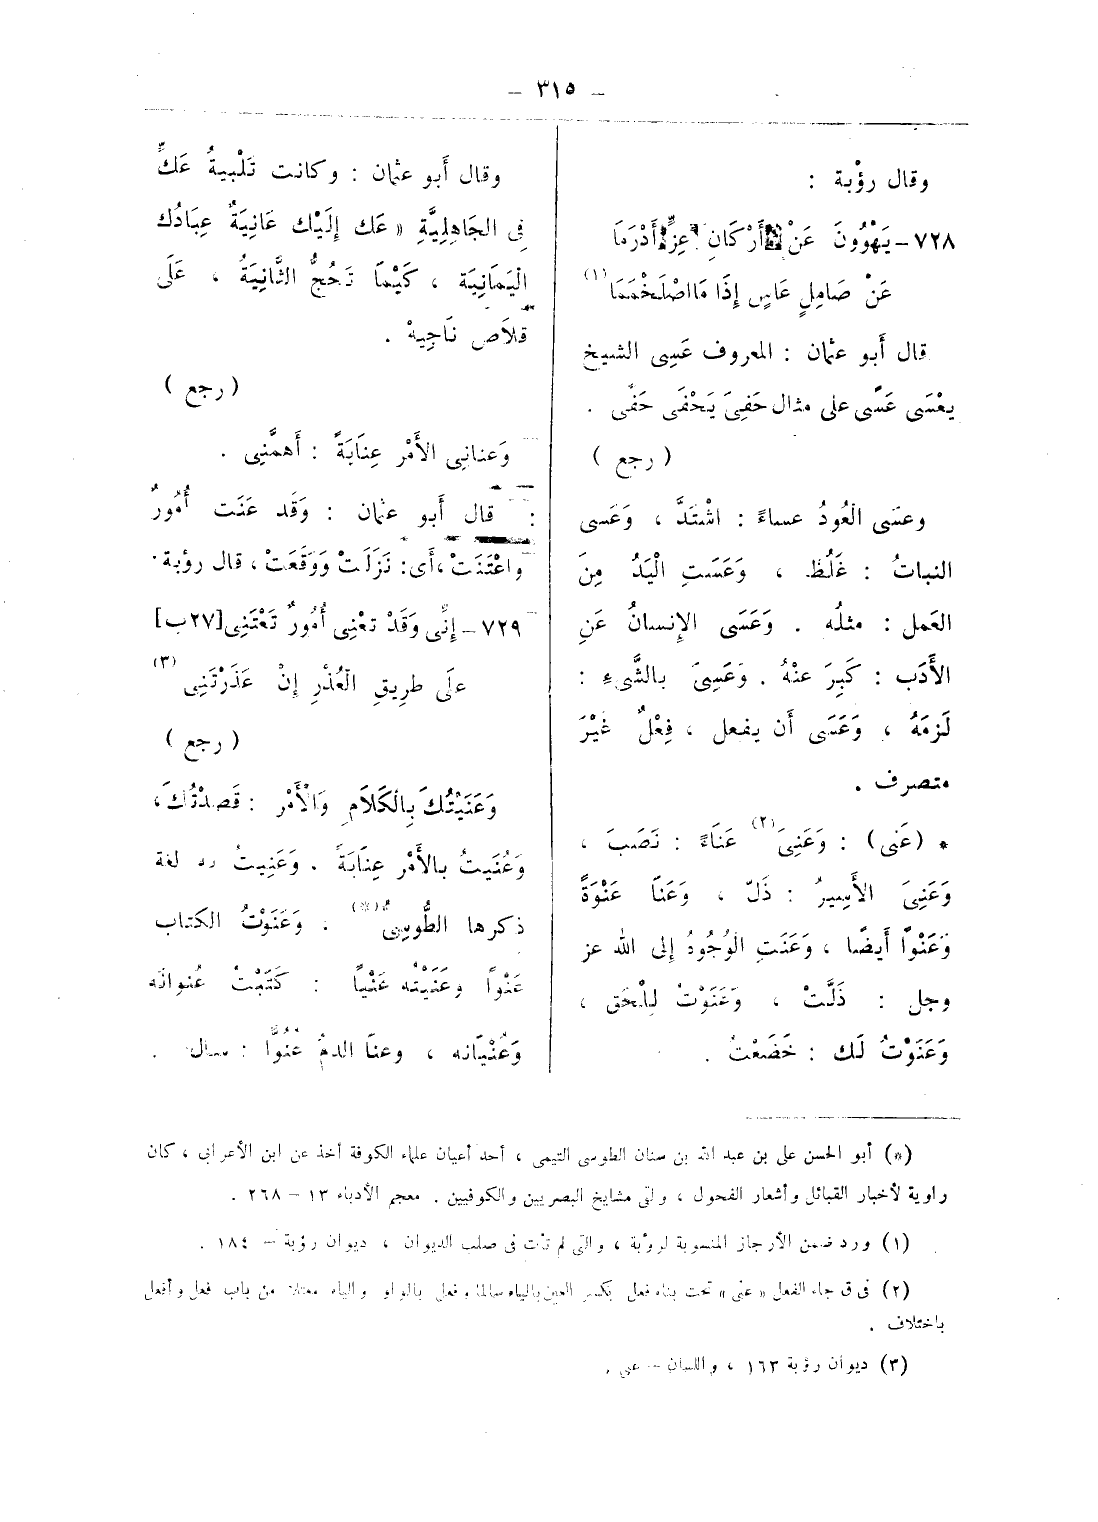 – ٣١٥ –
وقال رؤبة :
٧٢٨ – يَهْوُونَ عَنْ أَرْكَانِ عِزٍّ أَدْرَمَا
عَنْ صَامِلٍ عَاسٍ إِذَا مَا اصْلَخْمَمَا (١)
قال أبو عثمان : المعروف عَسِى الشيخ
يعْسَى عَسًى على مثال حَفِىَ يَحْفَى حَفًى .
( رجع )
وعسَى الْعُودُ عساءً : اشْتَدَّ ، وَعَسى
النباتُ : غَلُظ ، وَعَسَتِ الْيَدُ مِنَ
العَمل : مثلُه . وَعَسَى الإنسانُ عَنِ
الأَدَب : كَبِرَ عنْهُ . وَعَسِىَ بالشَّىءِ :
لَزمَهُ ، وَعَسَى أن يفعل ، فِعْلٌ غَيْرَ
متصرف .
* (عَنى) : وَعَنِىَ (٢) عَنَاءً : نَصَبَ ،
وَعَنِىَ الأَسِيرُ : ذَلّ ، وَعَنَا عَنْوَةً
وَعَنْوًا أَيضًا ، وَعَنَتِ الْوُجُوهُ إلى الله عز
وجل : ذَلَّتْ ، وَعَنَوْتُ لِلْحَق ،
وَعَنَوْتُ لَك : خَضَعْتُ .
وقال أَبو عثمان : وكانت تَلْبِيةُ عَكٍّ
فى الجَاهِليَّةِ « عَك إِلَيْك عَانِيَةٌ عِبَادُك
الْيَمَانِيَة ، كَيْمَا تَحُجُّ الثَّانِيَةُ ، عَلَى
قِلاَصٍ نَاجِيهْ .
( رجع )
وَعنانِى الأَمْر عِنَايَةً : أَهمَّنِى .
قال أَبو عثمان : وَقَد عَنَت أُمُورٌ
واعْتَنَتْ ، أى : نَزَلَتْ وَوَقَعَتْ ، قال رؤبة
٧٢٩ – إِنِّى وَقَدْ تعْنِى أُمُورٌ تَعْتَنِى [٢٧ب]
علَى طرِيقِ الْعُذْرِ إِنْ عَذَرْتَنِى (٣)
( رجع )
وَعَنَيْتُكَ بِالْكَلَامِ وَالْأَمْر : قَصدْتُكَ ،
وَعُنَيتُ بالأَمْر عِنَايَةً . وَعَنِيتُ به لغة
ذكرها الطُّوسِىُّ (*) . وَعَنَوْتُ الكتاب
عَنْوًا وعَنَيْتُه عَنْيًا : كَتَبْتُ عُنوانَه
وَعُنْيَانه ، وعنَا الدمُ عُنُوًّا : سال .
(*) أبو الحسن على بن عبد الله بن سنان الطوسى التيمى ، أحد أعيان علماء الكوفة أخذ عن ابن الأعرابى ، كان
راوية لأخبار القبائل وأشعار الفحول ، ولقى مشايخ البصريين والكوفيين . معجم الأدباء ١٣ – ٢٦٨ .
(١) ورد ضمن الأرجاز المنسوبة لرؤبة ، والتى لم تأت فى صلب الديوان ، ديوان رؤبة – ١٨٤ .
(٢) فى ق جاء الفعل « عنى » تحت بناء فعل بكسر العين بالياء سالما وفعل بالواو والياء معتلا من باب فعل وأفعل
باختلاف .
(٣) ديوان رؤبة ١٦٣ ، واللسان – عنى .